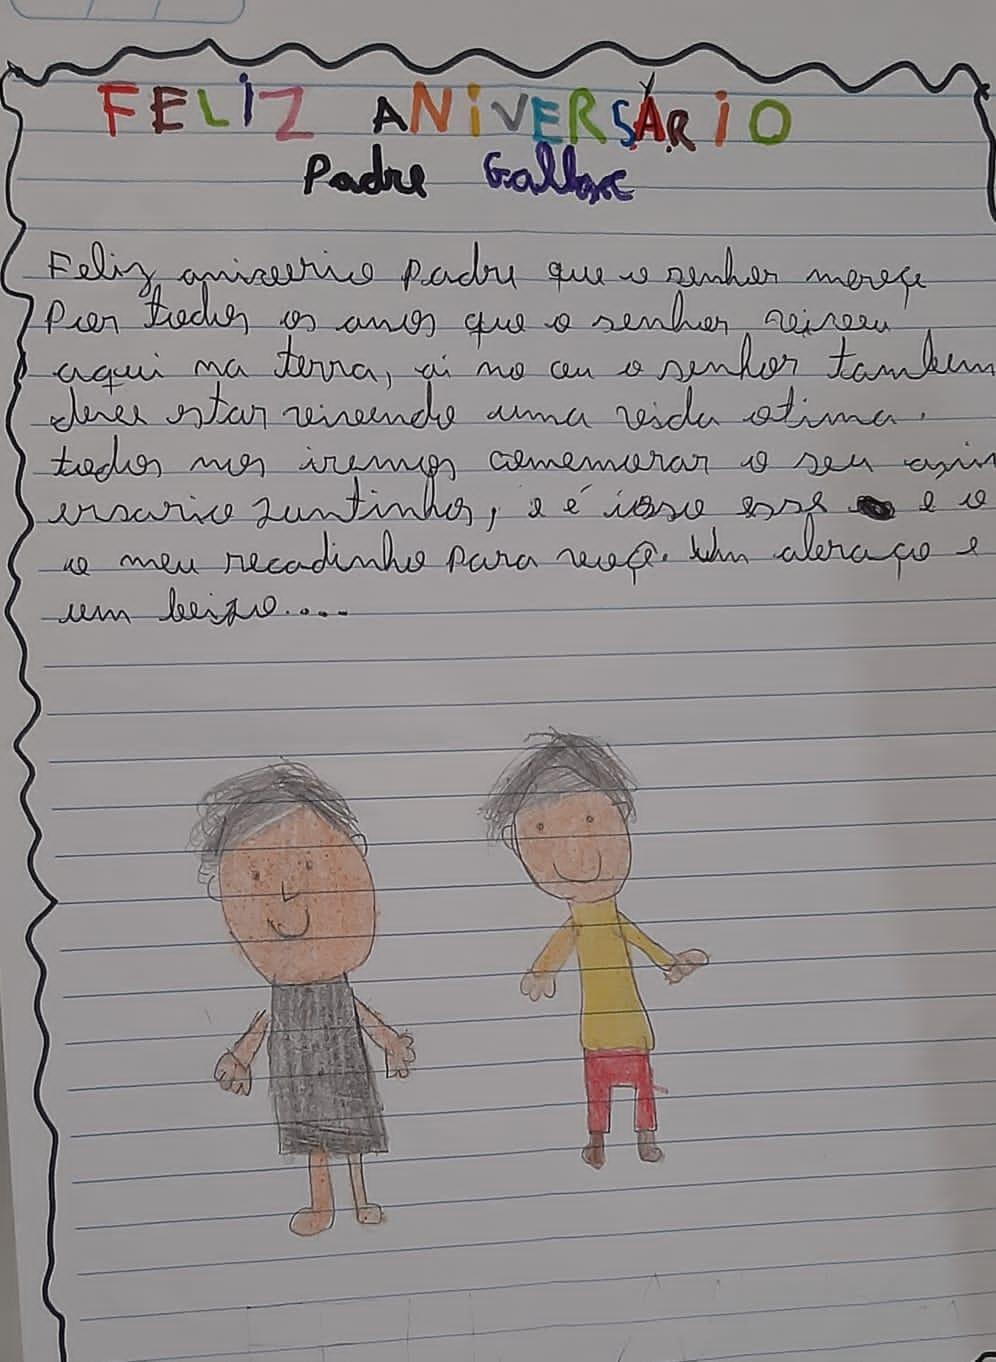 FELIZ ANIVERSÁRIO
Padre Gallone
Feliz aniverrio Padre que o senhor mereçe
Por todos os anos que o senhor viveu
aqui na terra, ai no ceu o senhor tambem
deve estar vivendo uma vida otima.
todos nos iremos comemorar o seu aniv
ersario juntinhos, e é isso esse e o
o meu recadinho para voçê. Um abraço e
um beijo....